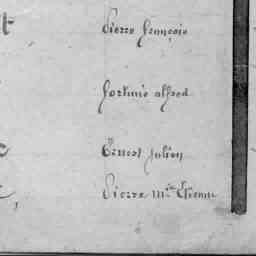 t Pierre françois
fortuné alfred
e Ernest Julien
Pierre Mie Etienne